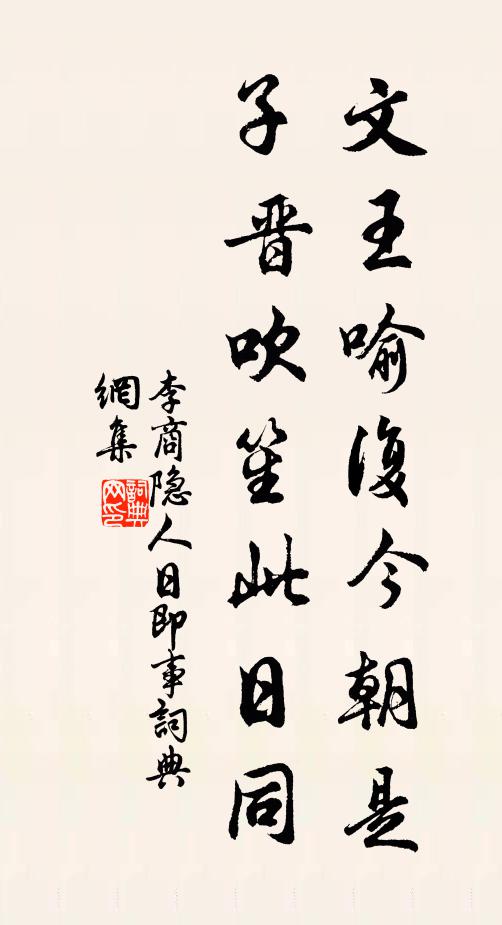 文王喻復今朝是
子晋吹笙此日同
李商隐人日即事詞典
網集
詞典
网印